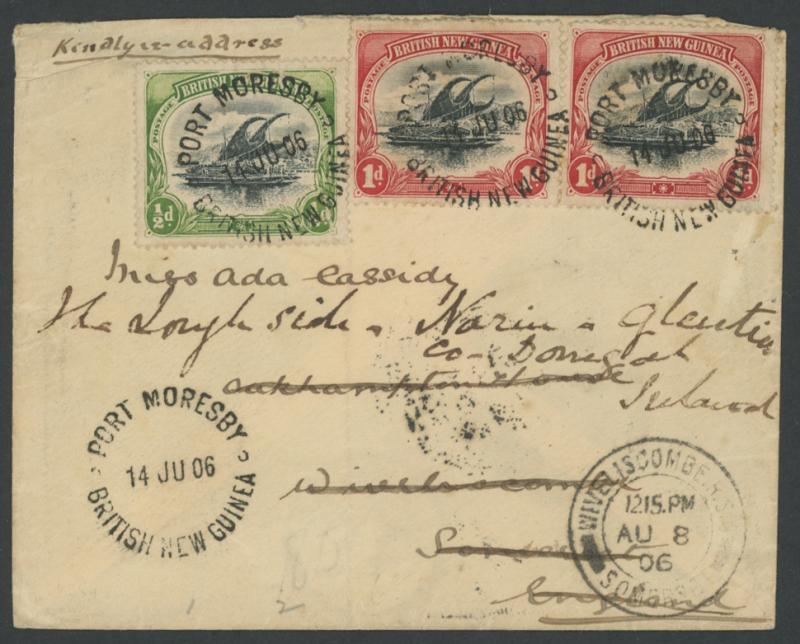 Kindly re-address
BRITISH NEW GUINEA
POSTAGE POSTAGE
½d
BRITISH NEW GUINEA
POSTAGE POSTAGE
1d 1d
BRITISH NEW GUINEA
POSTAGE POSTAGE
1d 1d
PORT MORESBY
14 JU 06
BRITISH NEW GUINEA
PORT MORESBY
14 JU 06
BRITISH NEW GUINEA
PORT MORESBY
14 JU 06
BRITISH NEW GUINEA
Miss Ada Cassidy
The Lough side. Narin. Glenties
Co- Donegal
Oakhampton House
Ireland
Wiveliscombe
Somerset
England
PORT MORESBY
14 JU 06
BRITISH NEW GUINEA
WIVELISCOMBE
12.15.PM
AU 8
06
SOMERSET
1 2